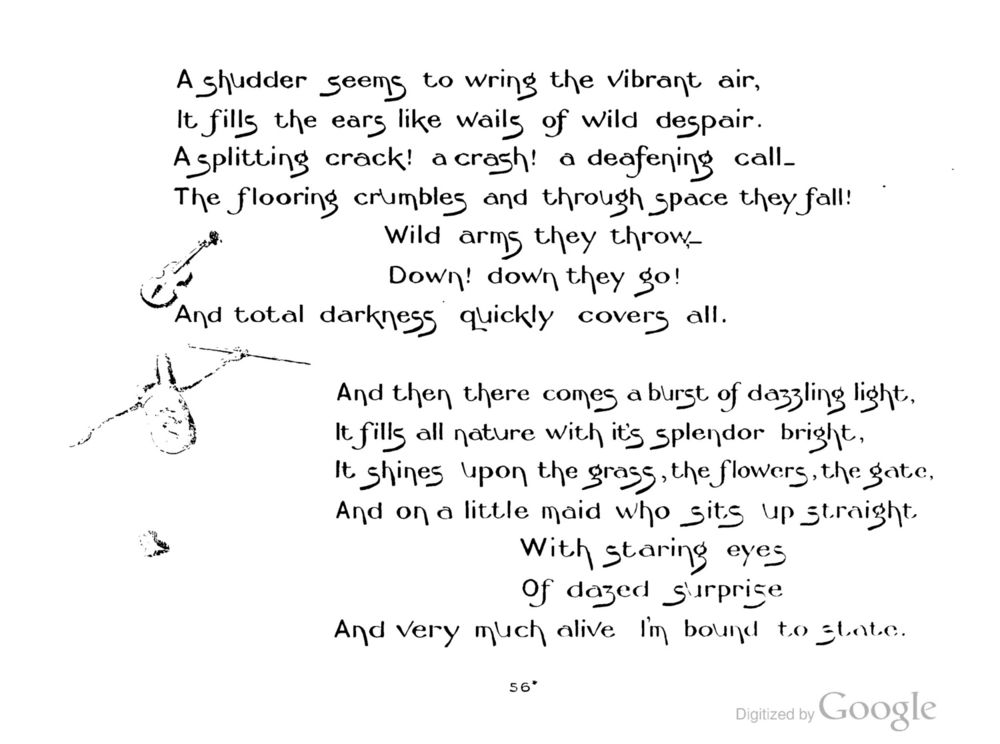 A shudder seems to wring the vibrant air,
It fills the ears like wails of wild despair.
A splitting crack! a crash! a deafening call—
The flooring crumbles and through space they fall!
Wild arms they throw,—
Down! down they go!
And total darkness quickly covers all.
And then there comes a burst of dazzling light,
It fills all nature with it's splendor bright,
It shines upon the grass, the flowers, the gate,
And on a little maid who sits up straight
With staring eyes
Of dazed surprise
And very much alive I'm bound to state.
56
Digitized by Google